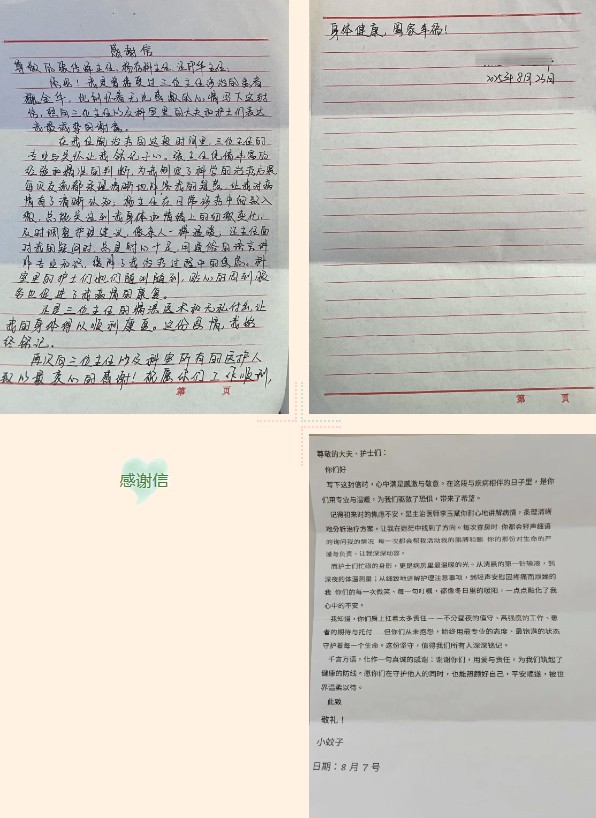 感谢信
尊敬的张传林主任、杨存科主任、汪邦年主任:
您好!我是曾接受过三位主任诊治的患者
在我住院治疗的这段时间里,三位主任的
专业与关怀让我铭记于心。张主任凭借丰富的
经验和精准的判断,为我制定了科学的治疗后案
每次查房都条理清晰地解答我的疑惑,让我对病
情有了清晰认知;杨主任在日常诊疗中细致入
微,总能关注到我身体和情绪上的细微变化,
及时调整护理建议,像亲人一样温暖;汪主任面
对我的疑问时,总是耐心十足,用通俗的语言讲
解专业知识,缓解了我治疗过程中的焦虑。科
室里的护士们也们随叫随到,贴心的周到服
务也促进了我病情的康复。
正是三位主任的精湛医术和无私付出,让
我的身体得以顺利康复。这份恩情,我将
终铭记。
再次向三位主任以及科室所有的医护人
致以最衷心的感谢!祝愿你们工作顺利,
第 页
身体健康,阖家幸福!
2025年8月25日
第 页
感谢信
尊敬的大夫、护士们:
你们好
写下这封信时,心中满是感激与敬意。在这段与疾病相伴的日子里,是你
们用专业与温暖,为我们驱散了恐惧,带来了希望。
记得初来时的焦虑不安,是主治医师李玉斌你耐心地讲解病情,条理清晰
地分析治疗方案,让我在迷茫中找到了方向。每次查房时 你都会轻声细语
的询问我的情况 每一次都会帮我活动我的胳膊和腿 你的那份对生命的严
谨与负责,让我深深动容。
而护士们忙碌的身影,更是病房里最温暖的光。从清晨的第一针输液,到
深夜的体温测量;从细致地讲解护理注意事项,到轻声安慰因疼痛而烦躁的
我 你们的每一次微笑、每一句叮嘱,都像冬日里的暖阳,一点点融化了我
心中的不安。
我知道,你们肩上扛着太多责任——不分昼夜的值守、高强度的工作、患
者的期待与托付 但你们从未抱怨,始终用最专业的态度、最饱满的状态
守护着每一个生命。这份坚守,值得我们所有人深深铭记。
千言万语,化作一句真诚的感谢:谢谢你们,用爱与责任,为我们筑起了
健康的防线。愿你们在守护他人的同时,也能照顾好自己,平安顺遂,被世
界温柔以待。
此致
敬礼!
小蚊子
日期:8 月 7 号